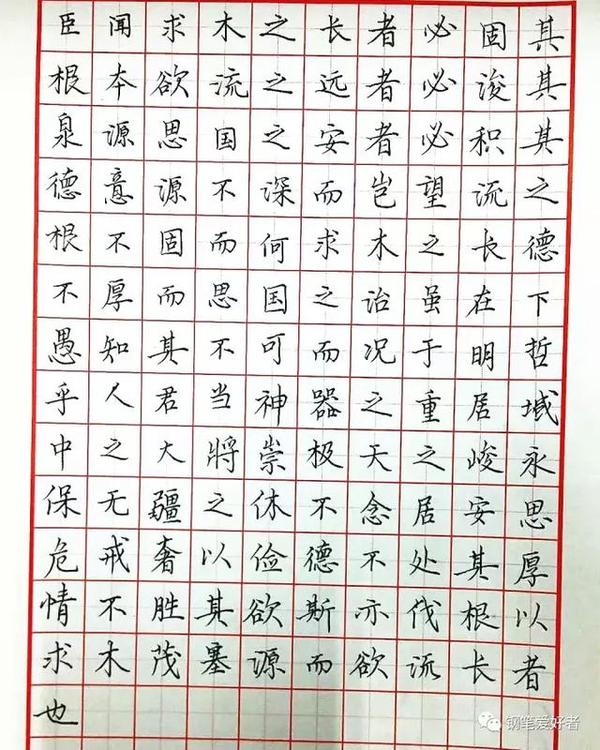 臣闻求木之长者必固其
根本欲流之远者必浚其
泉源思国之安者必积其
德意源不深而岂望流之
根不固而何求木之长德
不厚而思国之治虽在下
愚知其不可而况于明哲
乎人君当神器之重居域
中之大将崇极天之峻永
保无疆之休不念居安思
危戒奢以俭德不处其厚
情不胜其欲斯亦伐根以
求木茂塞源而欲流长者
也
钢笔爱好者